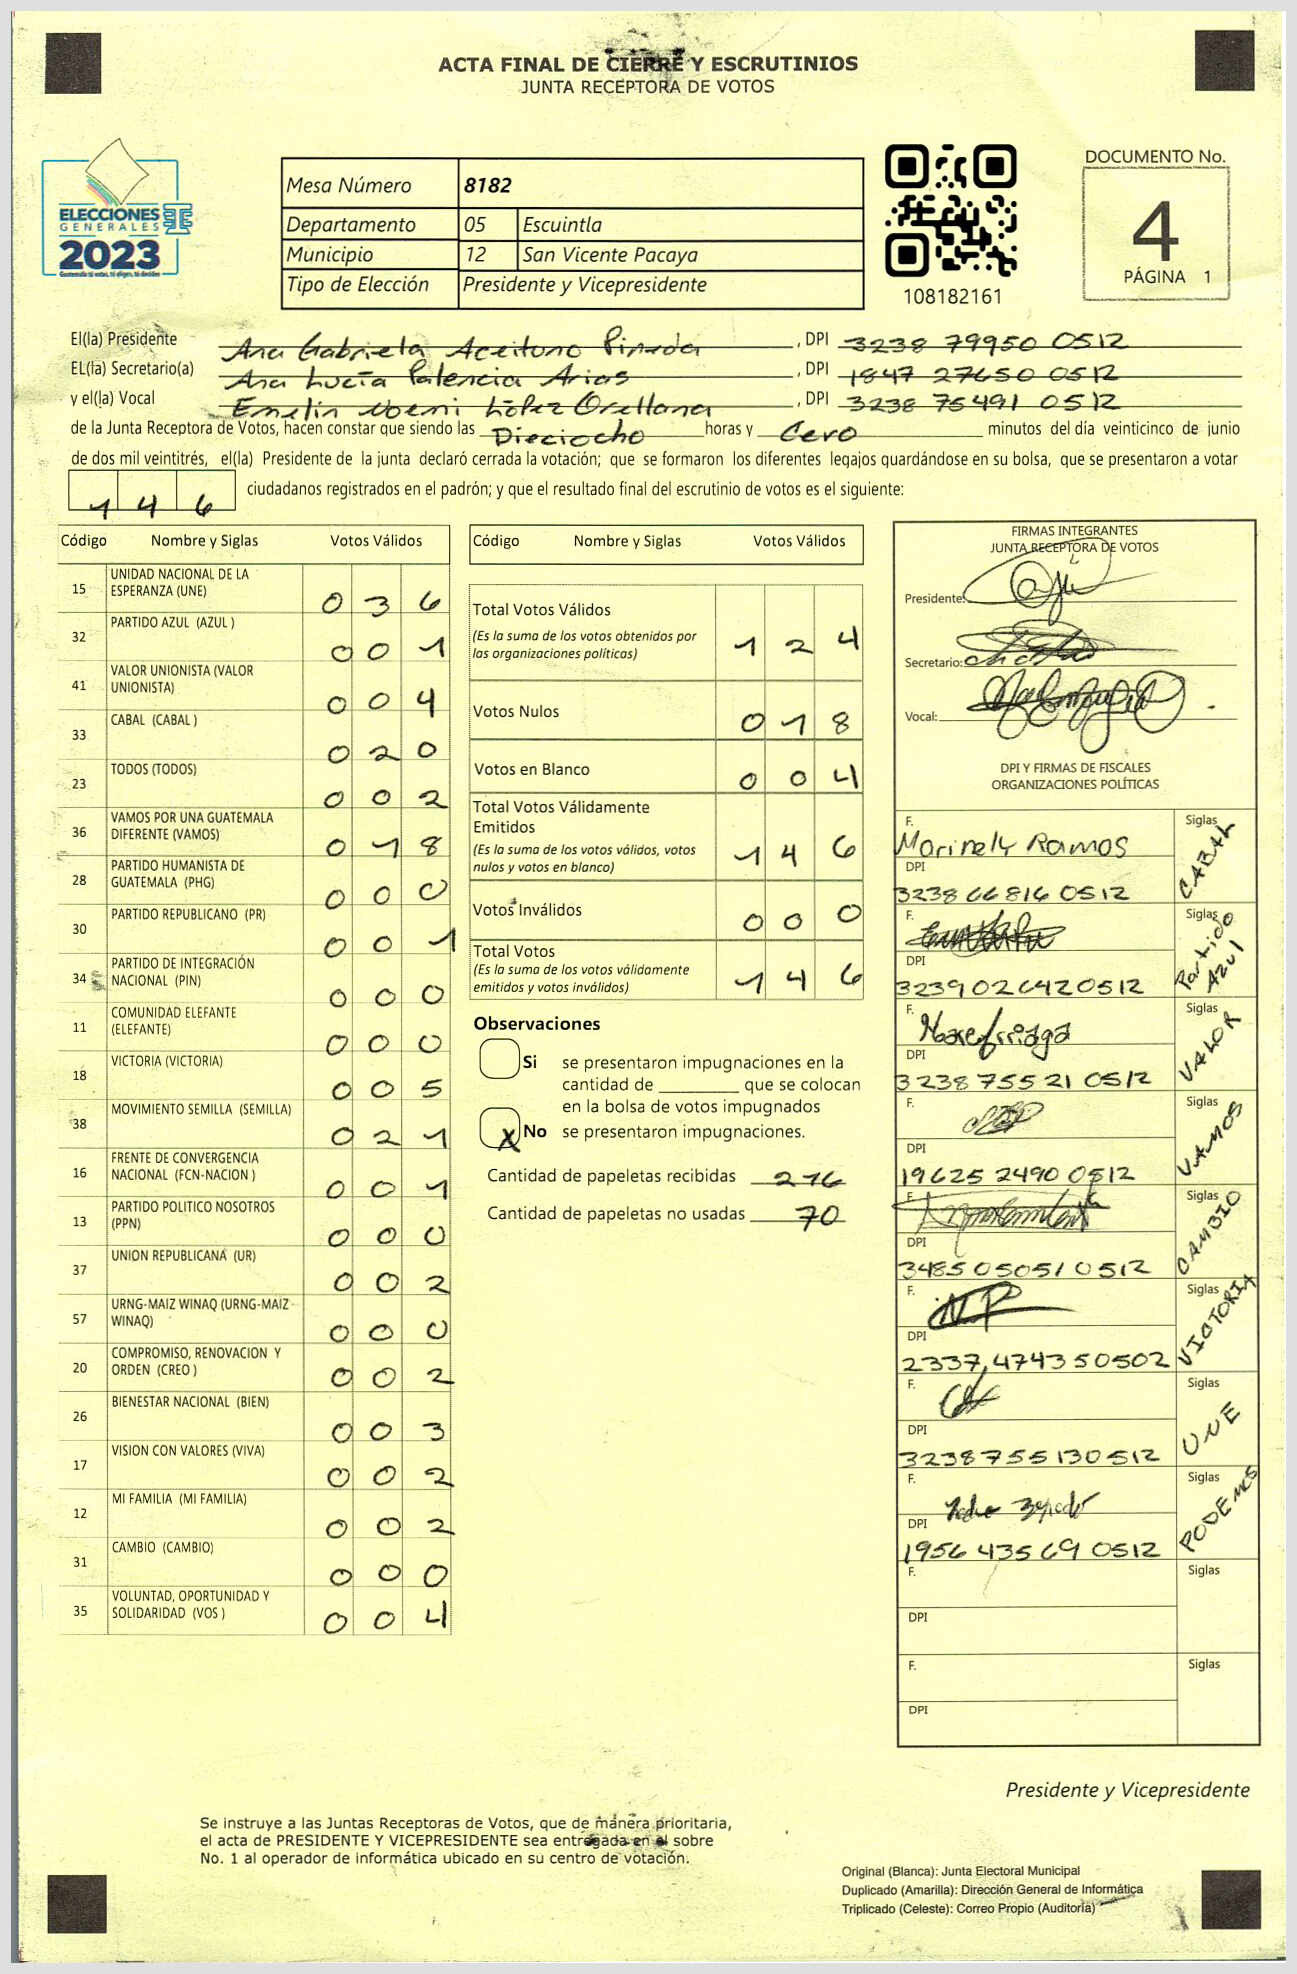 ACTA FINAL DE CIERRE Y ESCRUTINIOS
JUNTA RECEPTORA DE VOTOS
ELECCIONES
GENERALES
2023
Guatemala tú votas, tú eliges, tú decides
Mesa Número 8182
Departamento 05 Escuintla
Municipio 12 San Vicente Pacaya
Tipo de Elección Presidente y Vicepresidente
108182161
DOCUMENTO No.
4
PÁGINA 1
El(la) Presidente Ana Gabriela Aceituno Pineda , DPI 3238 79950 0512
EL(la) Secretario(a) Ana Lucía Palencia Arias , DPI 1847 27650 0512
y el(la) Vocal Emelin Noemi López Orellana , DPI 3238 75491 0512
de la Junta Receptora de Votos, hacen constar que siendo las Dieciocho horas y Cero minutos del día veinticinco de junio
de dos mil veintitrés, el(la) Presidente de la junta declaró cerrada la votación; que se formaron los diferentes legajos quardándose en su bolsa, que se presentaron a votar
146 ciudadanos registrados en el padrón; y que el resultado final del escrutinio de votos es el siguiente:
Código Nombre y Siglas Votos Válidos
15 UNIDAD NACIONAL DE LA
ESPERANZA (UNE) 036
32 PARTIDO AZUL (AZUL ) 001
41 VALOR UNIONISTA (VALOR
UNIONISTA) 004
33 CABAL (CABAL ) 020
23 TODOS (TODOS) 002
36 VAMOS POR UNA GUATEMALA
DIFERENTE (VAMOS) 018
28 PARTIDO HUMANISTA DE
GUATEMALA (PHG) 000
30 PARTIDO REPUBLICANO (PR) 001
34 PARTIDO DE INTEGRACIÓN
NACIONAL (PIN) 000
11 COMUNIDAD ELEFANTE
(ELEFANTE) 000
18 VICTORIA (VICTORIA) 005
38 MOVIMIENTO SEMILLA (SEMILLA) 021
16 FRENTE DE CONVERGENCIA
NACIONAL (FCN-NACION ) 001
13 PARTIDO POLITICO NOSOTROS
(PPN) 000
37 UNION REPUBLICANA (UR) 002
57 URNG-MAIZ WINAQ (URNG-MAIZ -
WINAQ) 000
20 COMPROMISO, RENOVACION Y
ORDEN (CREO ) 002
26 BIENESTAR NACIONAL (BIEN) 003
17 VISION CON VALORES (VIVA) 002
12 MI FAMILIA (MI FAMILIA) 002
31 CAMBIO (CAMBIO) 000
35 VOLUNTAD, OPORTUNIDAD Y
SOLIDARIDAD (VOS ) 004
Código Nombre y Siglas Votos Válidos
Total Votos Válidos
(Es la suma de los votos obtenidos por
las organizaciones políticas) 124
Votos Nulos 018
Votos en Blanco 004
Total Votos Válidamente
Emitidos
(Es la suma de los votos válidos, votos
nulos y votos en blanco) 146
Votos Inválidos 000
Total Votos
(Es la suma de los votos válidamente
emitidos y votos inválidos) 146
Observaciones
Si se presentaron impugnaciones en la
cantidad de ________ que se colocan
en la bolsa de votos impugnados
X No se presentaron impugnaciones.
Cantidad de papeletas recibidas 216
Cantidad de papeletas no usadas 70
FIRMAS INTEGRANTES
JUNTA RECEPTORA DE VOTOS
Presidente:
Secretario:
Vocal:
DPI Y FIRMAS DE FISCALES
ORGANIZACIONES POLÍTICAS
F. Marinely Ramos Siglas CABAL
DPI 3238 66816 0512
F. Siglas Partido Azul
DPI 3239026420512
F. Siglas VALOR
DPI 3238 75521 0512
F. Siglas VAMOS
DPI 19625 2490 0512
F. Siglas CAMBIO
DPI 3485 05051 0512
F. Siglas VICTORIA
DPI 2337,474350502
F. Siglas UNE
DPI 3238755130512
F. Siglas PODEMOS
DPI 1956 43569 0512
F. Siglas
DPI
F. Siglas
DPI
Presidente y Vicepresidente
Se instruye a las Juntas Receptoras de Votos, que de manera prioritaria,
el acta de PRESIDENTE Y VICEPRESIDENTE sea entregada en el sobre
No. 1 al operador de informática ubicado en su centro de votación.
Original (Blanca): Junta Electoral Municipal
Duplicado (Amarilla): Dirección General de Informática
Triplicado (Celeste): Correo Propio (Auditoría)